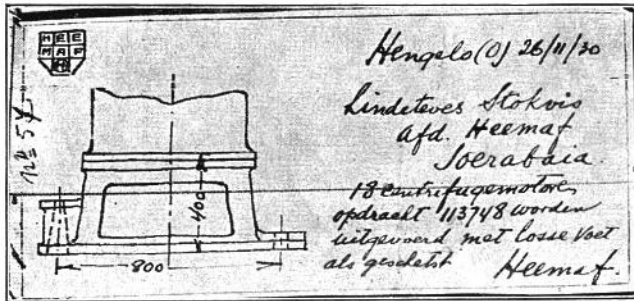 HEE
MAF
Hengelo (O) 26/11/30
Lindeteves Stokvis
Afd. Heemaf
Soerabaia.
18 centrifugemotoren
opdracht 113748 worden
uitgevoerd met losse voet
als geschetst
Heemaf.
No 54
400
800